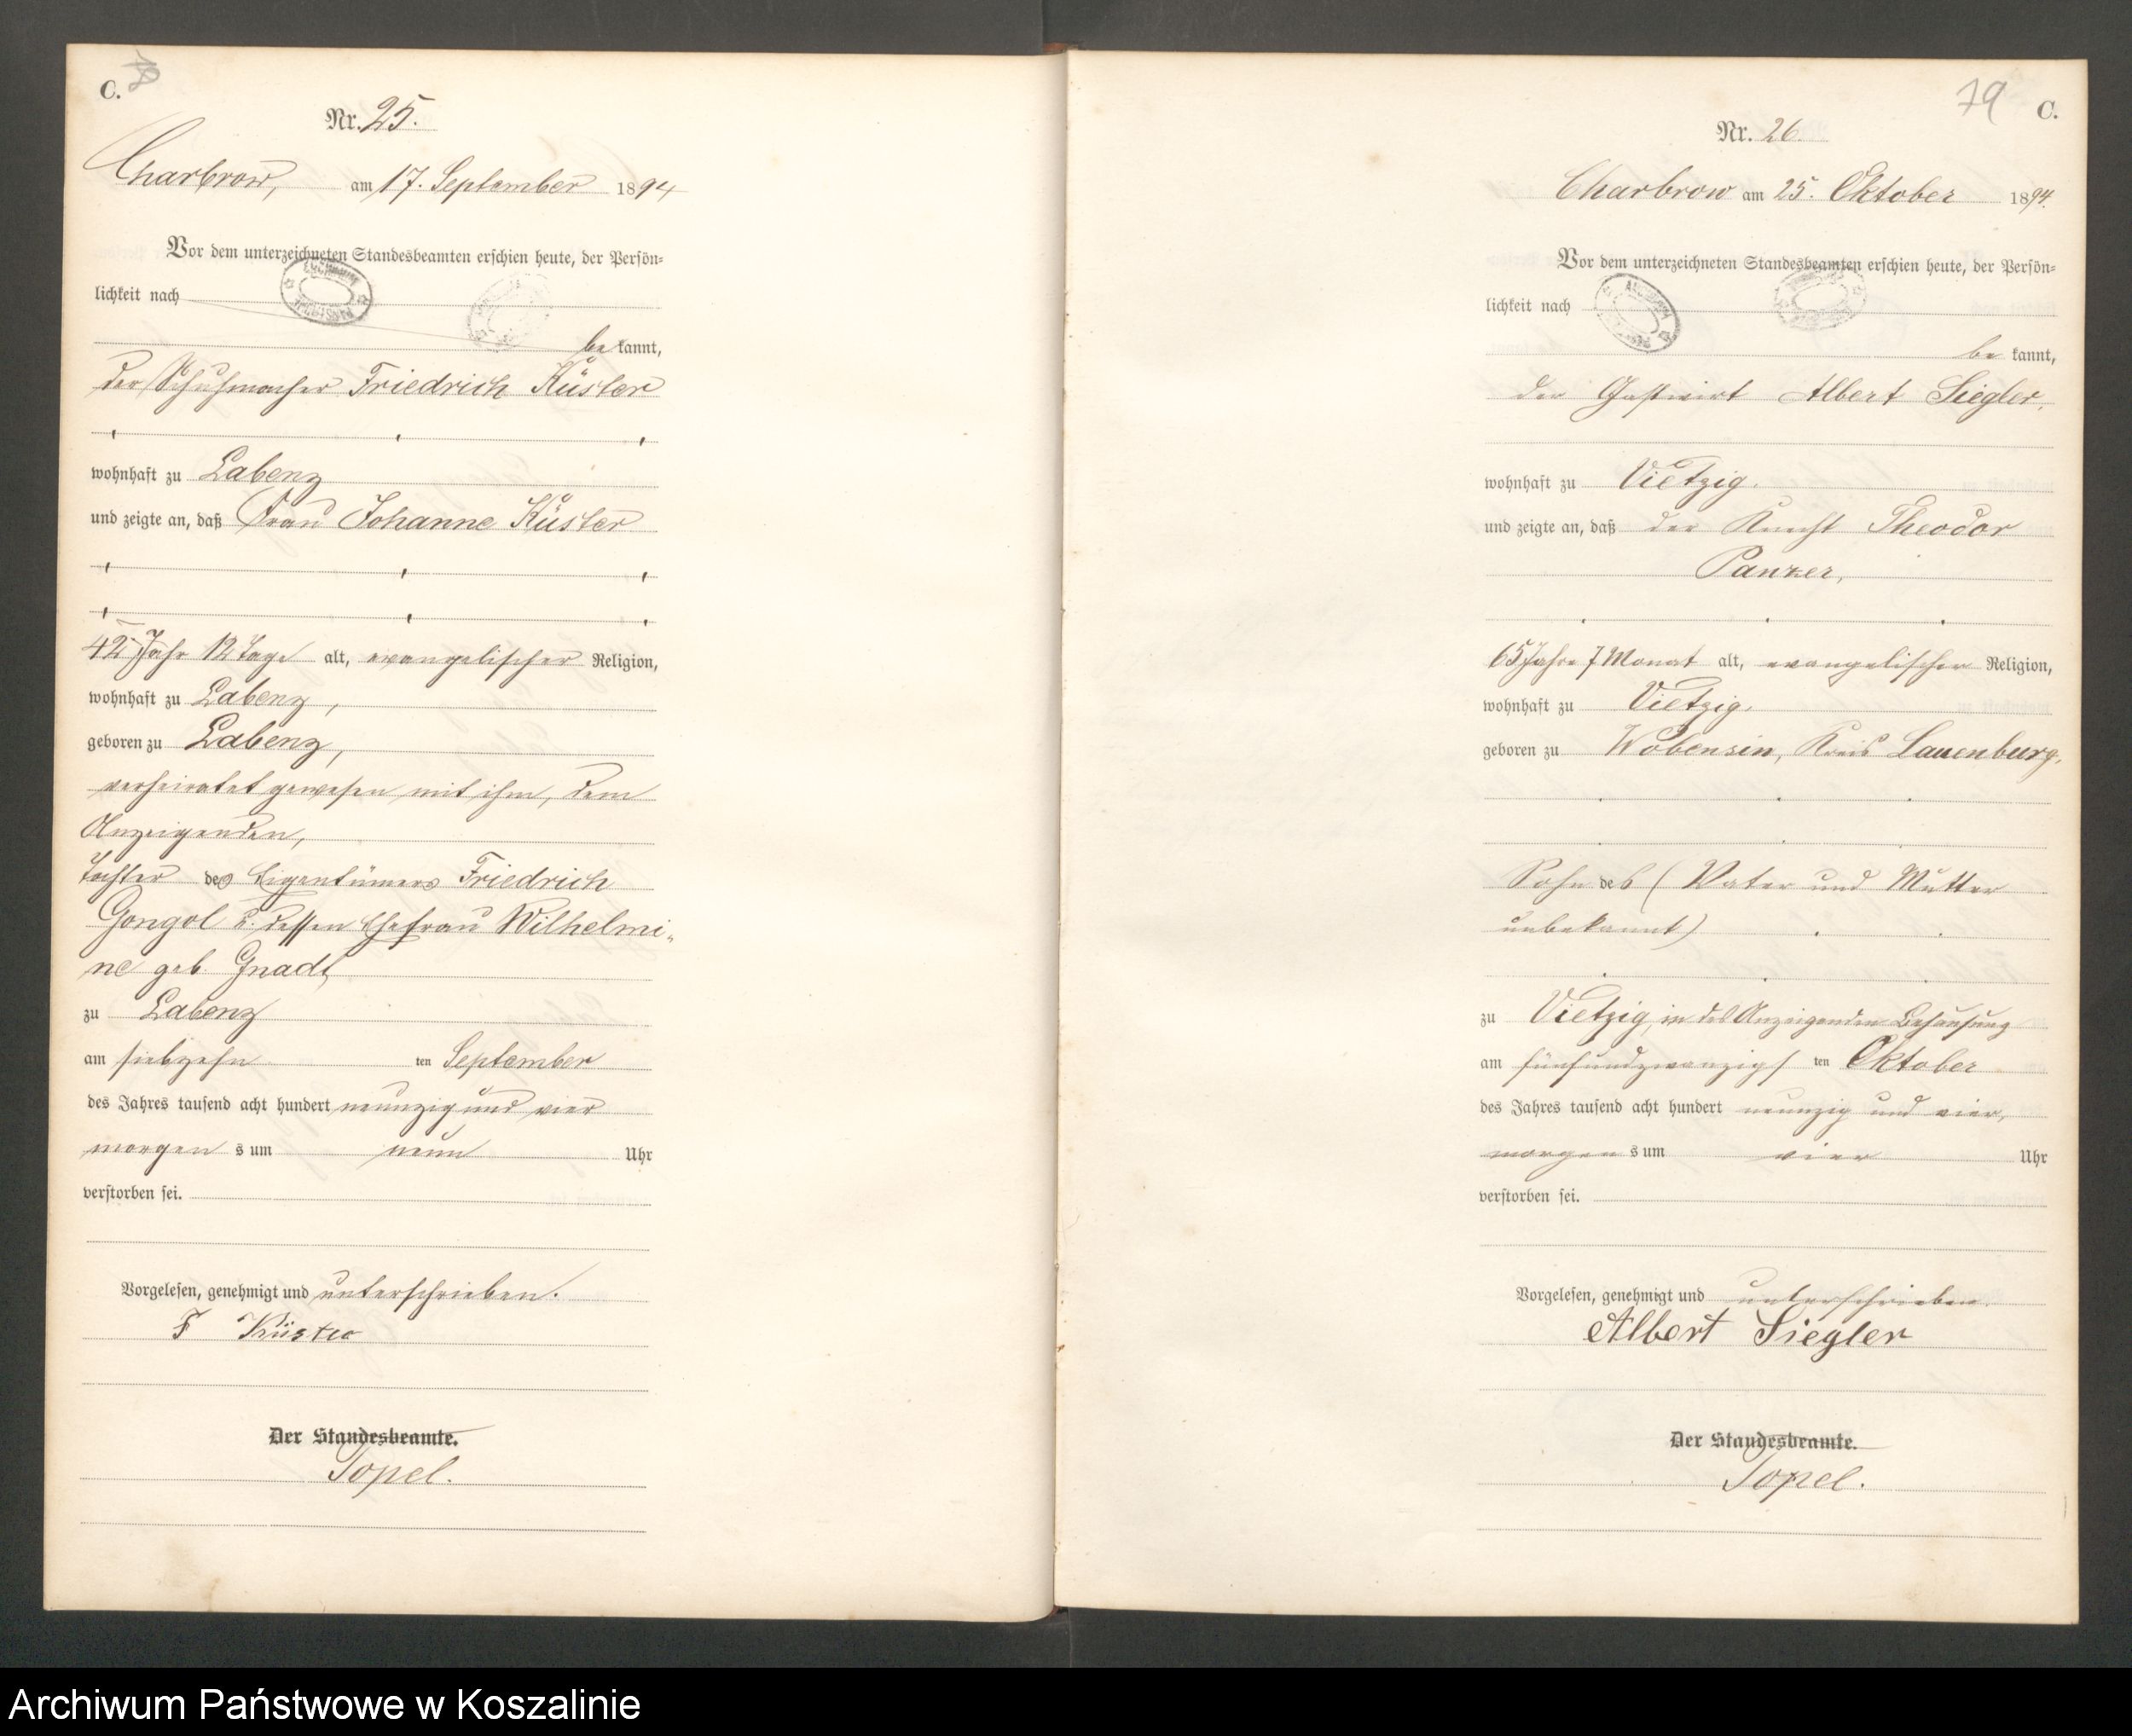 C.
Nr. 25.
Charbrow, am 17. September 1894
Vor dem unterzeichneten Standesbeamten erschien heute, der Persön=
lichkeit nach
be kannt,
der Schuhmacher Friedrich Küster
wohnhaft zu Labenz
und zeigte an, daß Frau Johanne Küster
42 Jahr 12 Tage alt, evangelischer Religion,
wohnhaft zu Labenz,
geboren zu Labenz,
verheiratet gewesen mit ihm, dem
Anzeigenden,
Tochter des Eigentümers Friedrich
Gongol u. dessen Ehefrau Wilhelmi=
ne geb. Gnadt
zu Labenz
am siebzehn ten September
des Jahres tausend acht hundert neunzig und vier
morgen s um neun Uhr
verstorben sei.
Vorgelesen, genehmigt und unterschrieben.
F Küster
Der Standesbeamte.
Topel.
79 C.
Nr. 26.
Charbrow am 25. Oktober 1894.
Vor dem unterzeichneten Standesbeamten erschien heute, der Persön=
lichkeit nach
be kannt,
der Gastwirt Albert Siegler,
wohnhaft zu Vietzig.
und zeigte an, daß der Knecht Theodor
Panzer,
65 Jahre 7 Monat alt, evangelischer Religion,
wohnhaft zu Vietzig.
geboren zu Wobensin, Kreis Lauenburg.
Sohn des (Vater und Mutter
unbekannt)
zu Vietzig, in des Anzeigenden Behausung
am fünfundzwanzigs ten Oktober
des Jahres tausend acht hundert neunzig und vier,
morgen s um vier Uhr
verstorben sei.
Vorgelesen, genehmigt und unterschrieben.
Albert Siegler
Der Standesbeamte.
Topel.
Archiwum Państwowe w Koszalinie